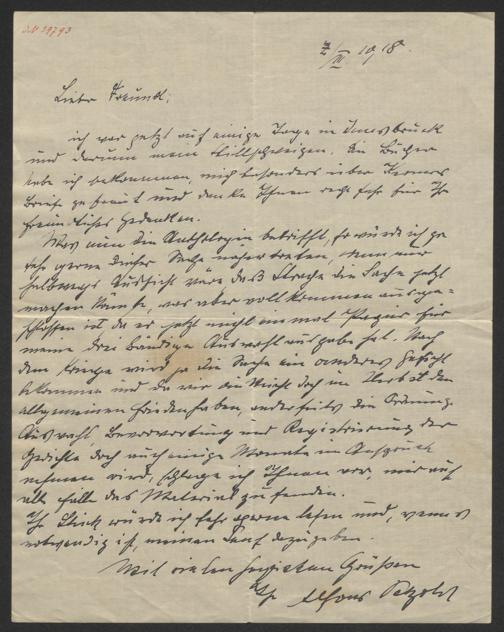 7/III 1918.
Lieber Freund!
ich war jetzt auf einige Tage in Innsbruck
und darum mein Stillschweigen. Die Bücher
habe ich bekommen, mich besonders über
Brief gefreut und danke Ihnen recht sehr für Ihr
freundliches Gedenken.
Was nun die Anthologie betrifft, so würde ich ja
sehr gerne dieser Sache näher treten, wenn nur
halbwegs Aussicht wäre daß die Sache jetzt
machen könnte, was aber vollkommen ausge-
schlossen ist da er jetzt nicht einmal Papier für
meine drei bändige Auswahlausgabe hat. Nach
dem Kriege wird ja die Sache ein anderes Gesicht
bekommen und da wir vielleicht doch im Herbst den
allgemeinen Frieden haben, anderseits die Ordnung,
Auswahl, Bevorwortung und Registrierung der
Gedichte doch auch einige Monate in Anspruch
nehmen wird, schlage ich Ihnen vor, mir auf
alle Fälle das Material zu senden.
Ihr Stück würde ich sehr gerne lesen und, wenn es
notwendig ist, meinen Senf dazugeben.
Mit vielen herzlichen Grüßen
Ihr Alfons Petzold